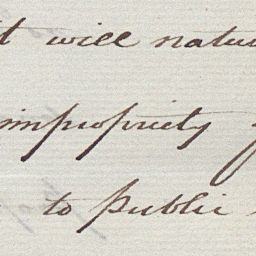 t will natu
impropriety
to public